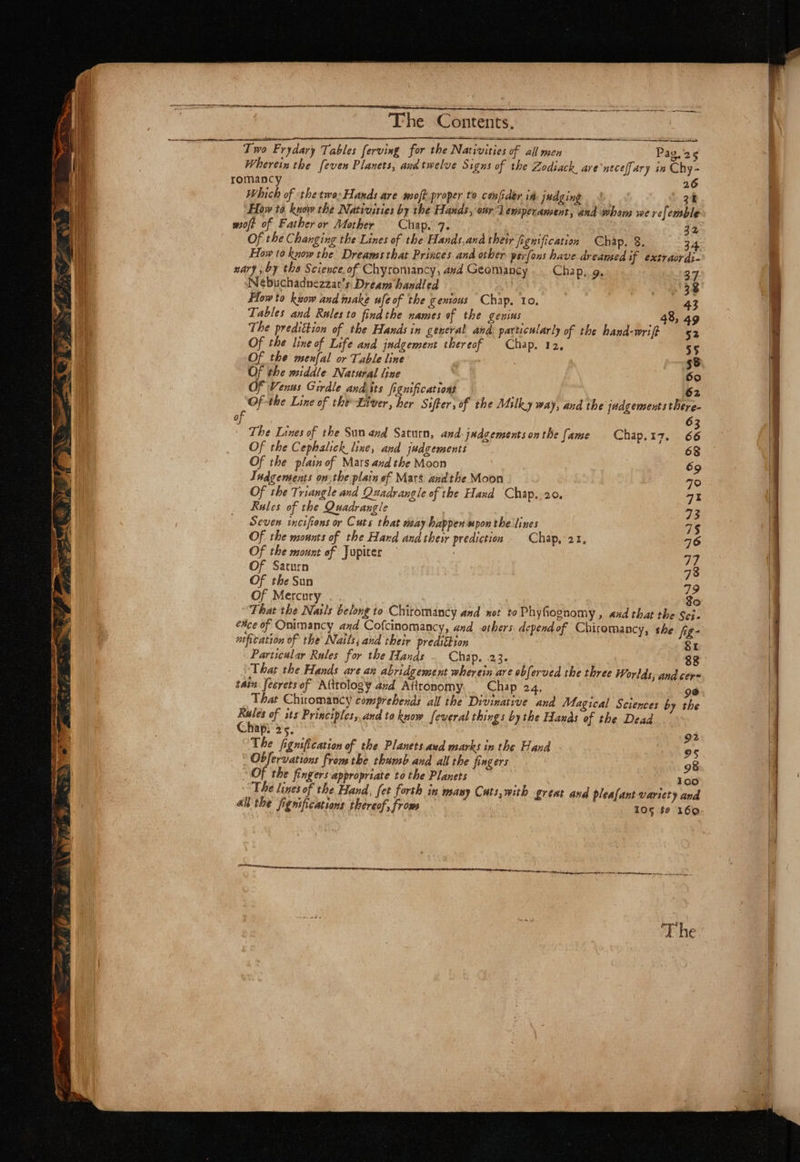 The Contents.
Two Frydary Tables ſerving for the Nativities of all men Pag. 25
Wherein the ſeven Planets, and twelve Signs of the Zodiack are neceſſary in Chy-
romancy 26
Which of the two Hands are moſt proper to conſider in judging 31
How to know the Nativities by the Hands, our Temperament, and whom we reſemble
moſt of Father or Mother Chap. 7. 32
Of the Changing the Lines of the Hands and their ſignification Chap. 8. 34
How to know the Dreams that Princes and other perſons have dreamed if extraordi-
nary, by the Science of Chyromancy, and Geomancy Chap. 9. 37
Nebuchadnezzar's Dream handled 38
How to know and make uſe of the genious Chap. 10. 43
Tables and Rules to find the names of the genius 48, 49
The prediction of the Hands in general and particularly of the hand-wriſt 52
Of the line of Life and judgement thereof Chap. 12. 55
Of the menſal or Table line 58
Of the middle Natural line 60
Of Venus Girdle and its ſignifications 62
Of the Line of the Liver, her Siſter, of the Milky way, and the judgements there-
of 63
The Lines of the Sun and Saturn, and judgements on the ſame Chap. 17. 66
Of the Cephalick line, and judgements 68
Of the plain of Mars and the Moon 69
Judgements on the plain of Mars and the Moon 70
Of the Triangle and Quadrangle of the Hand Chap. 20. 71
Rules of the Quadrangle 73
Seven inciſions or Cuts that may happen upon the lines 75
Of the mounts of the Hand and their prediction Chap. 21. 76
Of the mount of Jupiter 77
Of Saturn 78
Of the Sun 79
Of Mercury 80
That the Nails belong to Chiromancy and not to Phyſiognomy, and that the Sci-
ence of Onimancy and Coſcinomancy, and others depend of Chiromancy, the ſig-
nification of the Nails, and their prediction 81
Particular Rules for the Hands Chap. 23. 88
That the Hands are an abridgement wherein are obſerved the three Worlds, and cer-
tain ſecrets of Aſtrology and Aſtronomy Chap 24. 90
That Chiromancy comprehends all the Divinative and Magical Sciences by the
Rules of its Principles, and to know ſeveral things by the Hands of the Dead
Chap. 25. 92
The ſignification of the Planets and marks in the Hand 95
Obſervations from the thumb and all the fingers 98
Of the fingers appropriate to the Planets 100
The lines of the Hand, ſet forth in many Cuts, with great and pleaſant variety and
all the ſignifications thereof, from 105 to 160
The